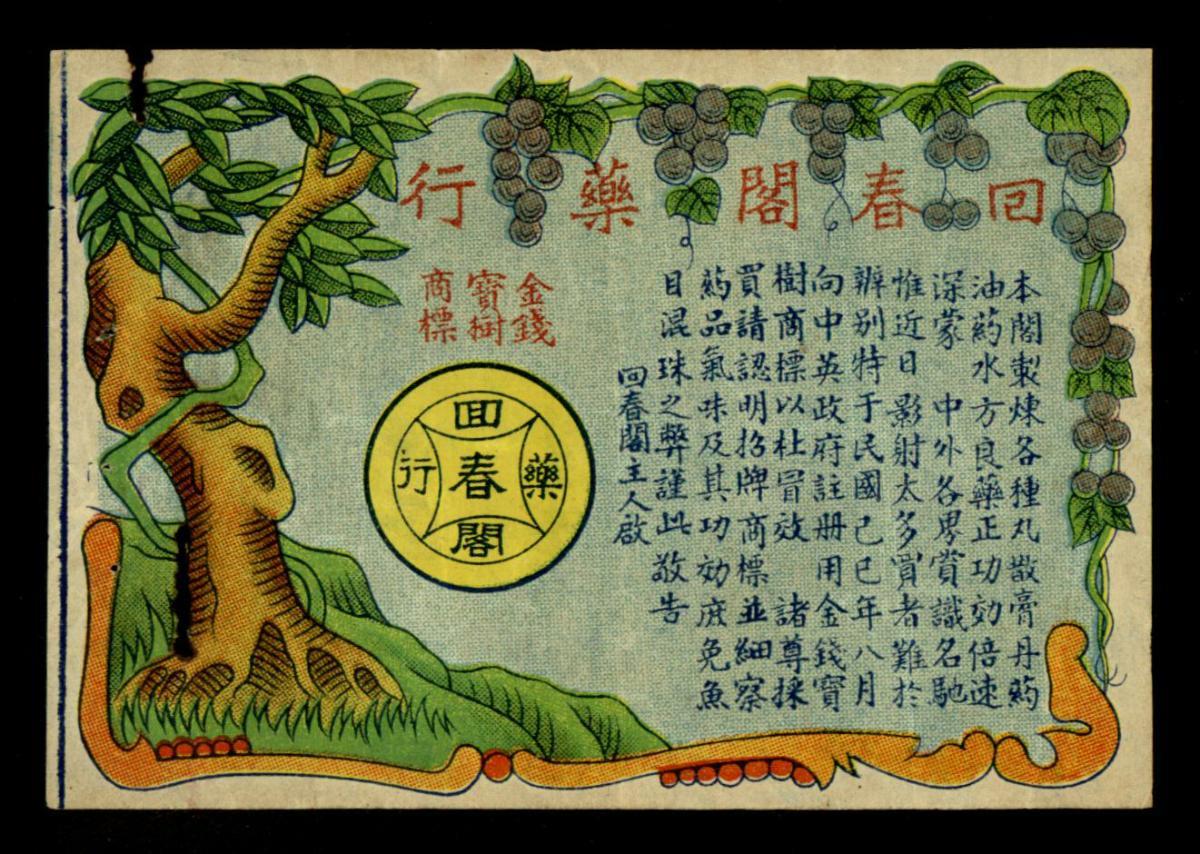 回春閣藥行
本閣製煉各種丸散膏丹葯
油葯水方良藥正功効倍速
深蒙 中外各界賞識名馳
惟近日影射太多買者難於
辨别特于民國己巳年八月
向中英政府註册用金錢寶
樹商標以杜冐效 諸尊採
買請認明招牌商標並細察
葯品氣味及其功効庶免魚
目混珠之弊謹此敬告
回春閣主人啟
金錢
寶樹
商標
回春閣
藥行